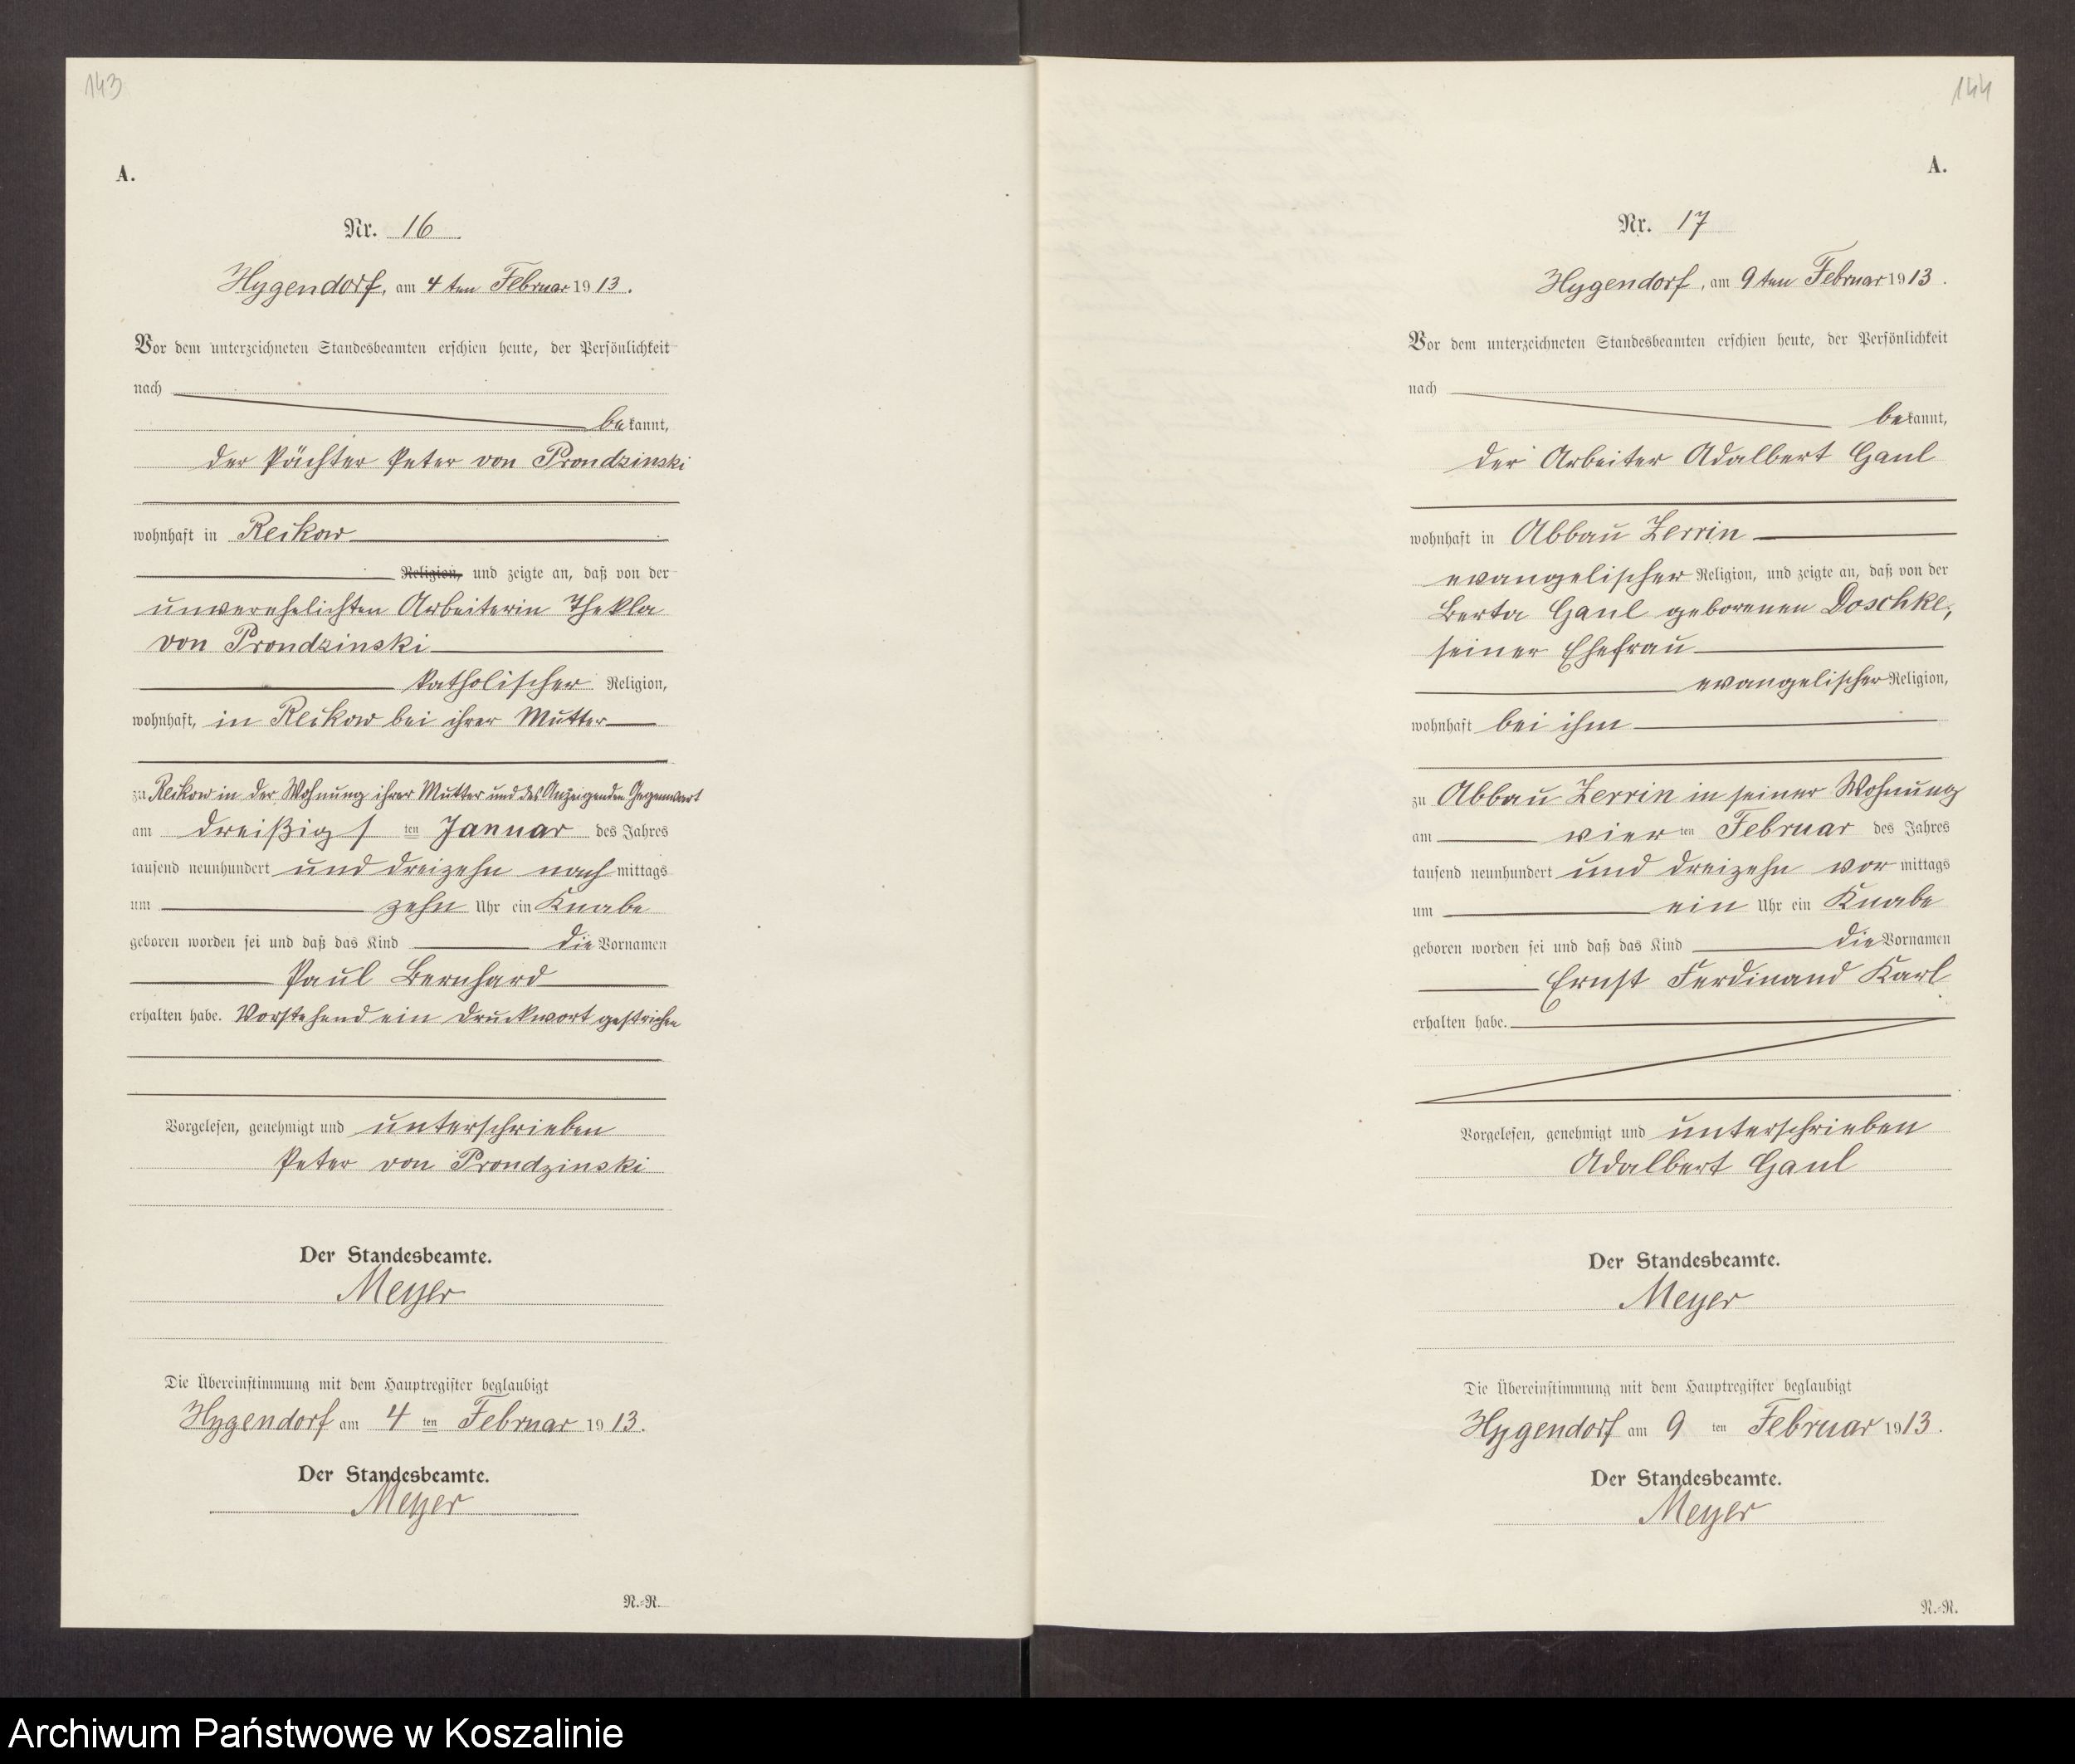 143
A.
Nr. 16
Hygendorf, am 4 ten Februar 1913.
Vor dem unterzeichneten Standesbeamten erschien heute, der Persönlichkeit
nach
bekannt,
der Pächter Peter von Prondzinski
wohnhaft in Reckow
Religion, und zeigte an, daß von der
unverehelichten Arbeiterin Thekla
von Prondzinski
katholischer Religion,
wohnhaft, in Reckow bei ihrer Mutter
zu Reckow in der Wohnung ihrer Mutter und des Anzeigenden Gegenwart
am dreißig ten Januar des Jahres
tausend neunhundert und dreizehn nachmittags
um zehn Uhr ein Knabe
geboren worden sei und daß das Kind die Vornamen
Paul Bernhard
erhalten habe. Vorstehend ein Druckwort gestrichen
Vorgelesen, genehmigt und unterschrieben
Peter von Prondzinski
Der Standesbeamte.
Meyer
Die Übereinstimmung mit dem Hauptregister beglaubigt
Hygendorf am 4 ten Februar 1913.
Der Standesbeamte.
Meyer
N.-R.
144
A.
Nr. 17
Hygendorf, am 9 ten Februar 1913.
Vor dem unterzeichneten Standesbeamten erschien heute, der Persönlichkeit
nach
bekannt,
der Arbeiter Adalbert Gaul
wohnhaft in Abbau Zerrin
evangelischer Religion, und zeigte an, daß von der
Berta Gaul geborenen Doschke,
seiner Ehefrau
evangelischer Religion,
wohnhaft bei ihm
zu Abbau Zerrin in seiner Wohnung
am vier ten Februar des Jahres
tausend neunhundert und dreizehn vormittags
um ein Uhr ein Knabe
geboren worden sei und daß das Kind die Vornamen
Ernst Ferdinand Karl
erhalten habe.
Vorgelesen, genehmigt und unterschrieben
Adalbert Gaul
Der Standesbeamte.
Meyer
Die Übereinstimmung mit dem Hauptregister beglaubigt
Hygendorf am 9 ten Februar 1913.
Der Standesbeamte.
Meyer
N.-R.
Archiwum Państwowe w Koszalinie